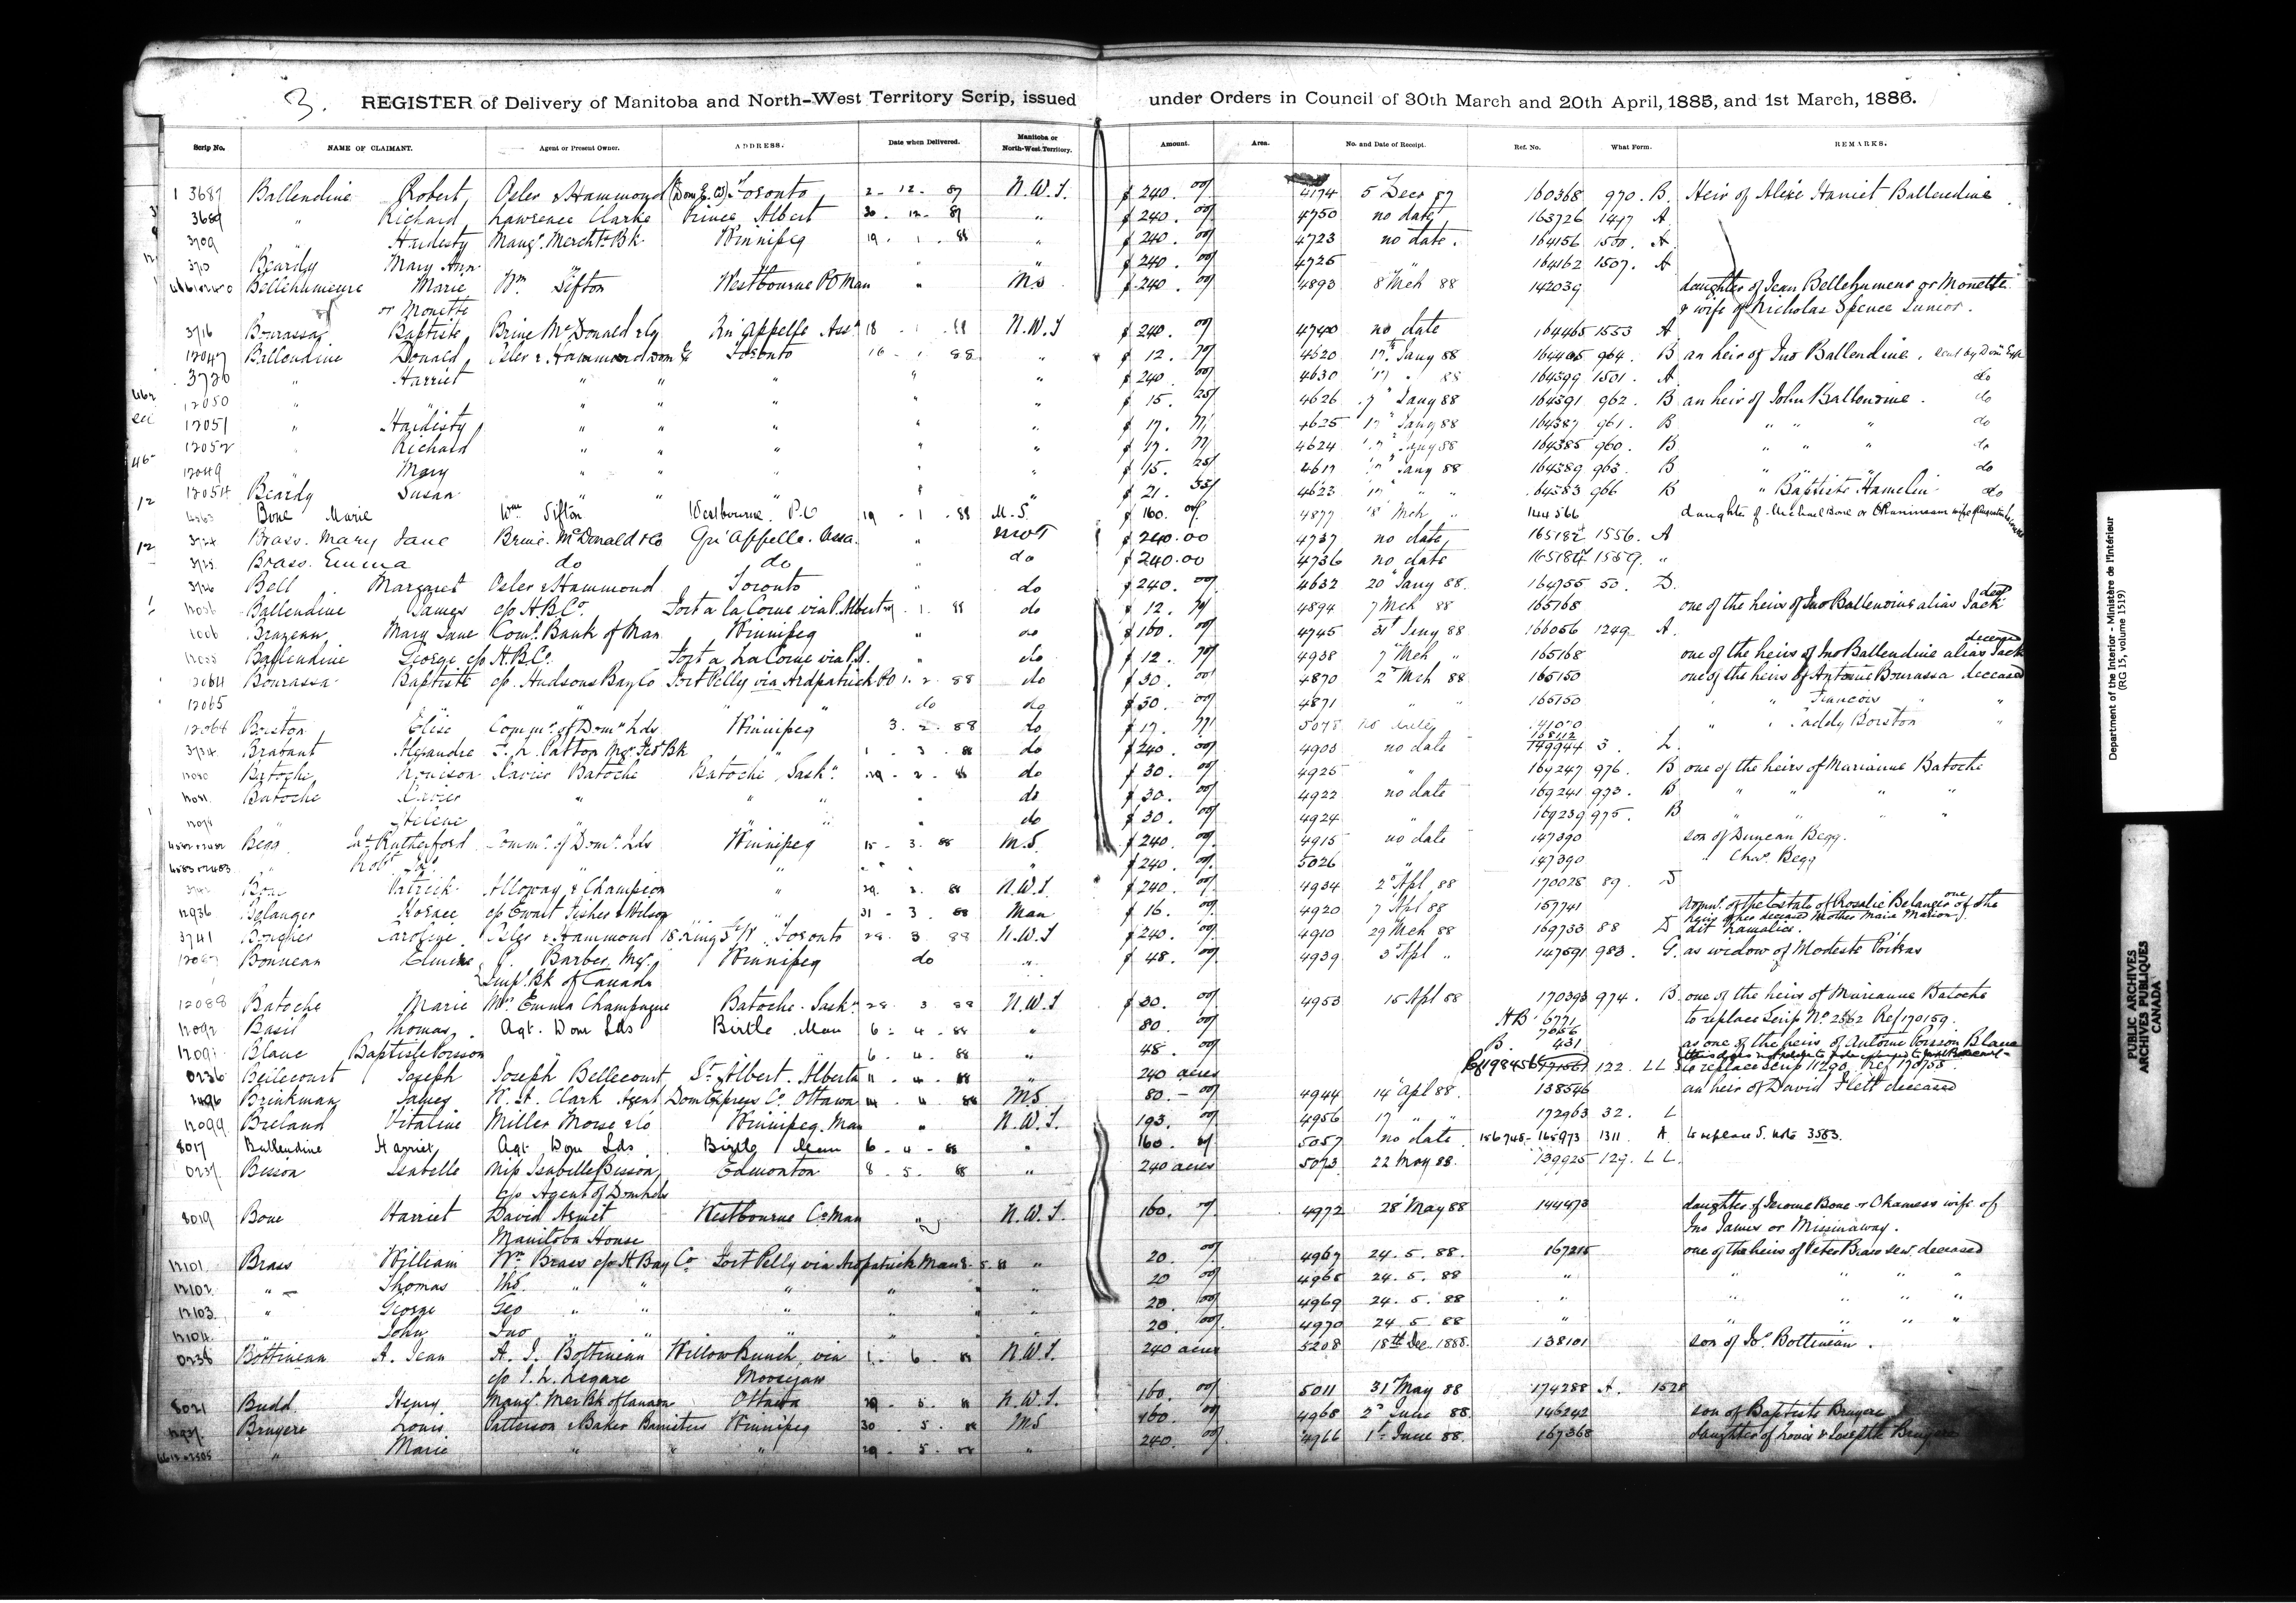 3. REGISTER of Delivery of Manitoba and North-West Territory Scrip, issued under Orders in Council of 30th March and 20th April, 1885, and 1st March, 1886.
Scrip No. NAME OF CLAIMANT. Agent or Present Owner. ADDRESS. Date when Delivered. Manitoba or North-West Territory. Amount. Area. No. and Date of Receipt. Ref. No. What Form. REMARKS.
3687 Ballendine Robert Osler & Hammond (Dom Ex. Co) Toronto 2 - 12 - 87 N.W.T. $ 240. 00/ 4174 5 Decr 87 160368 970. B. Heir of Alixe Harriet Ballendine
3689 " Richard Lawrence Clarke Prince Albert 30 - 12 - 87 " $ 240. 00/ 4750 no date 163726 1497 A
3709 Hardisty Mangr. Merchts Bk. Winnipeg 19 . 1 . 88 " $ 240. 00/ 4723 no date. 164156 1500. A
Beardy Mary Ann " " " $ 240. 00/ 4725 " 164162 1507. A
Bellehumeure Marie Wm Sifton Westbourne P O Man " MS $ 240. 00/ 4893 8 Mch 88 142039 daughter of Jean Bellehumeur or Monette
or Monette & wife of Nicholas Spence Junior.
3716 Bourassa Baptiste Brine McDonald & Co Qu'appelle Assa 18 . 1 . 88 N.W.T $ 240. 00/ 4740 no date 164465 1553 A
12047 Ballendine Donald Osler & Hammond Dom Ex Toronto 16 - 1 . 88 " $ 12. 70/ 4620 17th Jany 88 164405 964. B an heir of Jno Ballendine, sent by Dom Exp
3720 " Harriet " " " " " $ 240 00/ 4630 17 " 88 164399 1501. A do
12050 " " " " " " " $ 15. 25/ 4626 17 Jany 88 164391 962. B an heir of John Ballendine. do
12051 " Hardisty " " " " " $ 17. 77/ 4625 17 Jany 88 164387 961. B " " " do
12052 Richard " " " " " $ 17. 77/ 4624 17 Jany 88 164385 960. B " " " do
12049 Mary " " " " " $ 15. 25/ 4617 17 Jany 88 164389 963. B " " do
12054 Beardy Susan " " " " " $ 21. 35/ 4623 17 " " 164383 966 B " Baptiste Hamelin do
Bone Marie Wm Sifton Westbourne. P.O 19 . 1 . 88 M.S. $ 160. 00/ 4877 8 Mch " 144566 daughter of Michael Bone or
3724 Brass. Mary Jane Brine. McDonald & Co Qu'Appelle. Assa. " NWT $ 240.00 4737 no date 165182 1556. A
3725 Brass. Emma do do " do $ 240.00 4736 no date 1559. "
3726 Bell Margaret Osler & Hammond Toronto " do $ 240. 00/ 4632 20 Jany 88. 164755 50. D.
Ballendine James c/o H.B.Co. Fort a la Corne via P. Albert . 1. 88 do $ 12. 70/ 4894 7 Mch 88 165168 one of the heirs of Jno Ballendine alias Jack decd
Brazeau Mary Jane Coml. Bank of Man Winnipeg " do $ 160. 00/ 4745 31st Jany 88 166056 1249 A.
Ballendine George c/o H.B.Co. Fort a La Corne via P.A. " do $ 12. 70/ 4938 7 Mch " 165168 one of the heirs of Jno Ballendine alias Jack deceased
12064 Bourassa Baptiste c/o Hudsons Bay Co Fort Pelly via Ardpatrick PO 1. 2 . 88 do $ 30. 00/ 4870 2 Mch 88 165150 one of the heirs of Antoine Bourassa deceased
12065 " " " " do do $ 30. 00/ 4871 " " 165150 " " Francois "
12066 Borston Elise Commr. of Domn Lds Winnipeg 3. 2 . 88 do $ 17. 77/ 5078 no date 168112 " " Paddy Borston "
3734 Brabant Alexandre F. L. Patton Mgr. Fed Bk " 1 . 3 . 88 do $ 240. 00/ 4903 no date 149944 3. L.
Batoche Xavier Batoche Batoche, Sask. 29 - 2 . 88 do $ 30. 00/ 4925 " 169247 976. B one of the heirs of Marianne Batoche
Batoche Xavier " " " " do $ 30. 00/ 4922 no date 169241 973. B " " " "
Helene " " " do $ 30. 00/ 4924 " 169239 975. B " " " "
Begg Jas Rutherford Commr. of Domn. Lds Winnipeg 15 . 3 . 88 M.S. $ 240. 00/ 4915 no date 147390 son of Duncan Begg.
" Robt. " " $ 240. 00/ 5026 " 147390 " Chas. Begg
Patrick Alloway & Champion " 29. 2. 88 N.W.T. $ 240. 00/ 4934 2 Apl, 88 170028 89. D
12936 Belanger Horace c/o Ewart Fisher & Wilson 31 - 3 . 88 Man $ 16. 00/ 4920 7 Apl 88 157741 of the Estate of Rosalie Belanger one of the
heirs of her deceased mother Marie Marion
3741 Caroline Osler & Hammond 18 King St W. Toronto 28. 3. 88 N.W.T $ 240. 00/ 4910 29 Mch 88 169733 88 D
Bonneau Barber Mgr. Winnipeg do " $ 48. 00/ 4939 3 Apl " 147591 983. G. as widow of Modeste Poitras
Impl. Bk of Canada
12088 Batoche Marie Mrs Emma Champagne Batoche. Sask. 28. 3 . 88 N.W.T $ 30. 00/ 4953 15 Apl 88 170393 974. B one of the heirs of Marianne Batoche
12092 Basil Thomas Agt. Dom Lds Birtle Man 6 - 4 . 88 " 80. 00/ AB 6771 to replace Scrip No. 2562 Ref 170159.
Blanc Baptiste Poisson 6 . 4 . 88 " 48. 00/ B. 431 as one of the heirs of Antoine Poisson Blanc
0236 Bellecourt Joseph Joseph Bellecourt St. Albert. Alberta 11 . 4 . 88 " 240 acres 122. LL to replace scrip 11290. Ref. 170755
Brinkman James R. H. Clark Agent Dom Express Co. Ottawa 14 . 4 . 88 MS 80. - 00/ 4944 14 Apl 88. 138546 an heir of David Flett deceased
12099 Breland Vitaline Miller Morse & Co Winnipeg. Man " N.W.T. 193. 00/ 4956 17 " " 172963 32. L
8017 Ballendine Harriet Agt. Dom Lds Birtle Man 6 - 4 - 88 " 160. 00/ 5057 no date 156748 - 165973 1311 A to replace S. note 3583.
0237 Besson Isabelle Miss Isabelle Besson Edmonton 8 . 5 . 88 " 240 acres 5073 22 May 88. 139925 129. LL.
c/o Agent of Dom Lds
8019 Bone Harriet David Armit Westbourne Co Man " N.W.T. 160. 00/ 4972 28 May 88 144473 daughter of Jerome Bone or Okamess wife of
Manitoba House Jno James or Missinaway.
12101 Brass William Wm Brass c/o H Bay Co Fort Pelly via Ardpatrick Man 8. 5. 88 " 20 00/ 4967 24. 5. 88. 167215 one of the heirs of Peter Brass sen. deceased
12102 " Thomas Ths. " " " " " 20 00/ 4968 24. 5. 88 " " " " "
12103 " George Geo " " " " " 20. 00/ 4969 24. 5. 88 " " " " "
12104 " John Jno " " " " " 20. 00/ 4970 24. 5. 88 " " " " "
0238 Bottineau A. Jean A. J. Bottineau Willow Bunch, via 1. 6. 88 N.W.T. 240 acres 5208 18th Dec. 1888. 138101 son of Jos. Bottineau.
c/o J. L. Legare Moosejaw
8021 Budd Henry Mangr. Mer Bk of Canada Ottawa 29 . 5 . 88 N.W.T. 160. 00/ 5011 31 May 88 174288 A. 1528
Bruyere Louis Patterson & Baker Barristers Winnipeg 30 . 5 . 88 MS 160. 00/ 4968 2d June 88. 146242 son of Baptiste Bruyere
" Marie " " " 29 . 5 . 88 " 240. 00/ 4966 1st June 88. 167368 daughter of Louis & Josephte Bruyere
Department of the Interior - Ministère de l'Intérieur
(RG 15, volume 1519)
PUBLIC ARCHIVES
ARCHIVES PUBLIQUES
CANADA